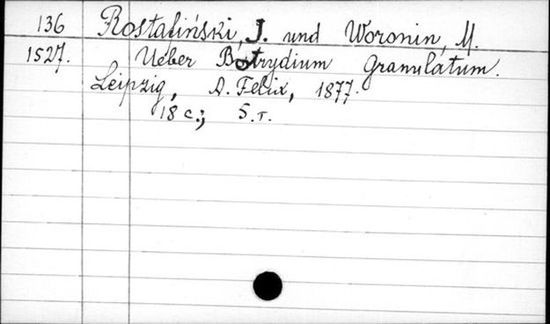 136 Rostafiński, J. und Woronin, M.
1527. Ueber Botrydium Granulatum.
Leipzig, A. Felix, 1877.
18 c.; 5.т.